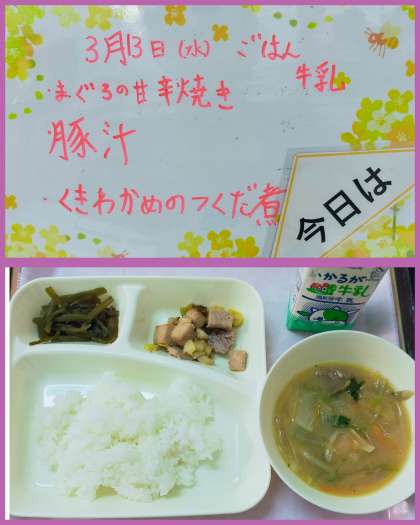 3月13日(水) ごはん
牛乳
・まぐろの甘辛焼き
豚汁
・くきわかめのつくだ煮
今日は
いかるが
牛乳